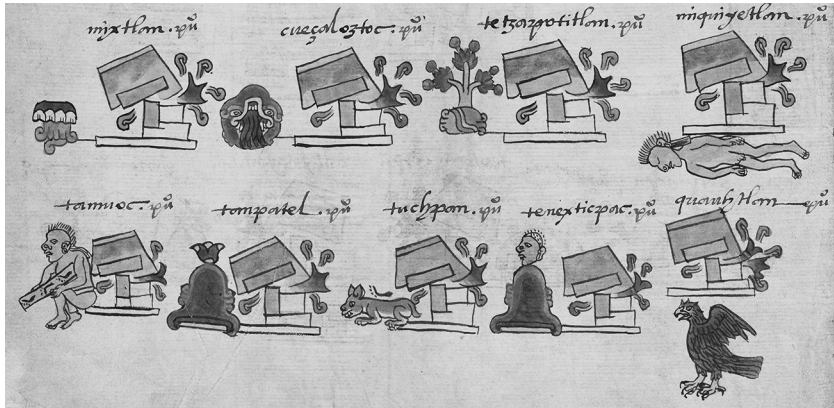 mixtlan . puº cueçaloztoc . puº tetzapotitlan . puº miquiyetlan . puº
tamuoc . puº tampatel . puº tuchpan . puº tenexticpac . puº quauhtlan puº